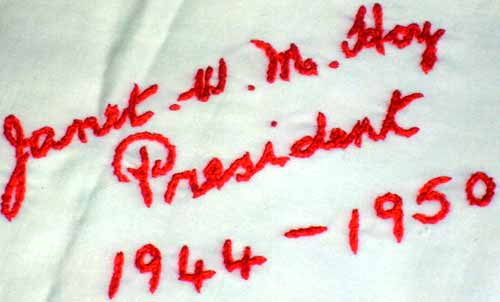 Janet. W. M. Hoy
President
1944 - 1950